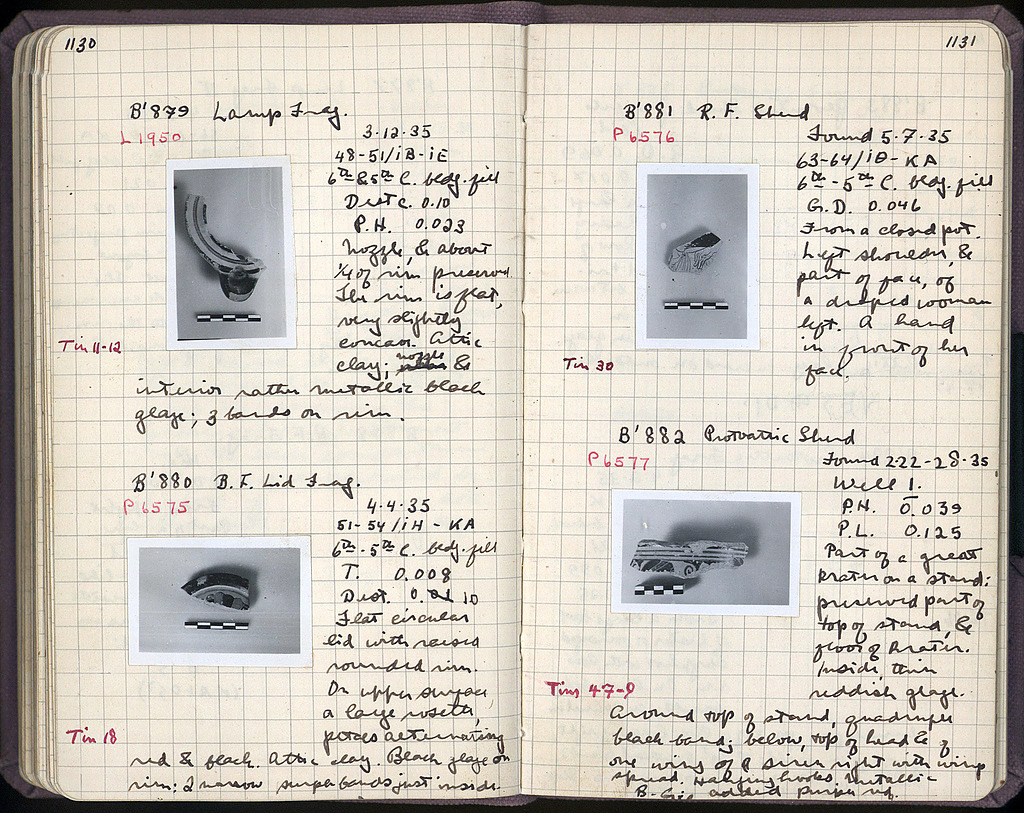 1130
B'879 Lamp Frag.
L 1950
3·12·35
48-51/ιΒ-ιΕ
6th & 5th C. bldg. fill
Dest c. 0.10
P.H. 0.023
Nozzle, & about
1/4 of rim preserved
The rim is flat,
very slightly
concave. Attic
Tin 11-12
clay; nozzle &
interior rather metallic black
glaze; 3 bands on rim.
B'880 B.F. Lid Frag.
P 6575
4·4·35
51-54/ιΗ-ΚΑ
6th-5th C. bldg. fill
T. 0.008
Dest. 0.10
Flat circular
lid with raised
rounded rim.
On upper surface,
a large rosette,
petals alternating
Tin 18
red & black. Attic clay. Black glaze on
rim; 2 narrow purple bands just inside.
1131
B'881 R.F. Sherd
P 6576
Found 5·7·35
63-64/ιΘ-ΚΑ
6th-5th C. bldg. fill
G.D. 0.046
From a closed pot.
Left shoulder, &
part of face, of
a draped woman
left. A hand
in front of her
face.
Tin 30
B'882 Protoattic Sherd
P 6577
Found 2·22-28·35
Well 1.
P.H. 0.039
P.L. 0.125
Part of a great
krater on a stand:
preserved part of
top of stand, &
floor of krater.
Inside, thin
reddish glaze.
Tins 47-9
Around top of stand, quadruple
black band; below, top of head & of
one wing of a siren right with wings
spread. Hanging hooks. Metallic
B.G.; added purple red.